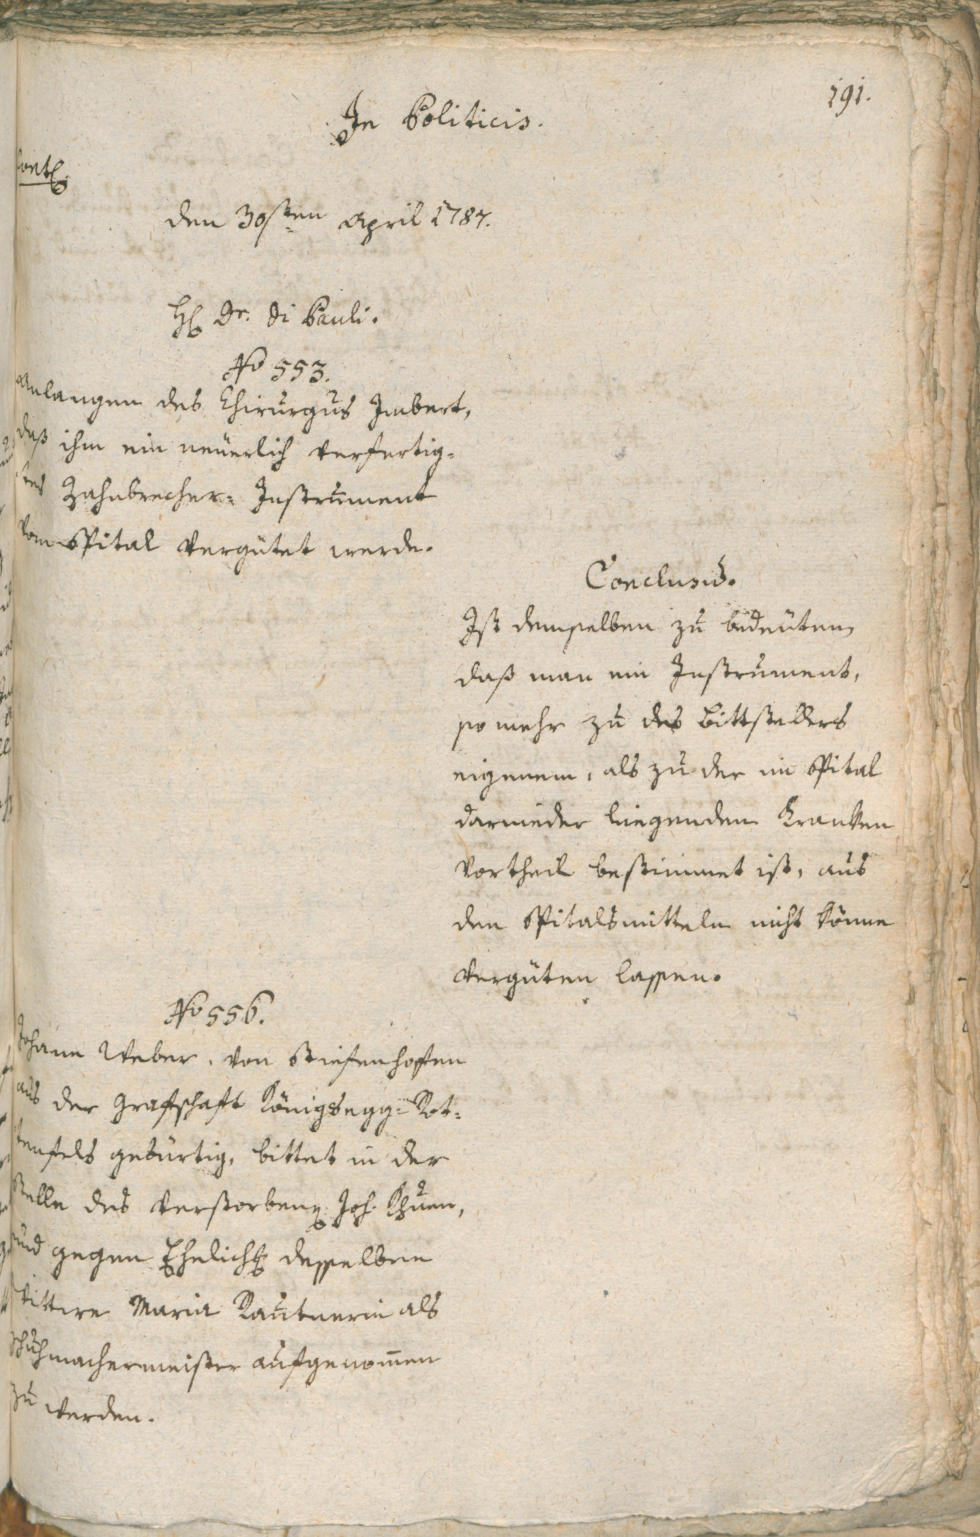 191.
In Politicis.
den 30sten April 1787.
H. Dr. di Pauli.
No 553.
Anlangen des Chirurgus Imbert,
daß ihm ein neüerlich verfertig-
tes Zahnbrecher-Instrument
vom Spital vergütet werde.
Conclusum.
Ist demselben zu bedeüten,
daß man ein Instrument,
so mehr zu des Bittstellers
eigenem, als zu der im Spital
darnieder liegenden Kranken
Vortheil bestimmet ist, aus
den Spitalsmitteln nicht könne
vergüten lassen.
No 556.
Johann Weber, von Stiefenhoffen
aus der Grafschaft Königsegg-Rot-
tenfels gebürtig, bittet in der
Stelle des verstorbenen Joh. Khuen,
und gegen Ehelich. desselben
Wittwe Maria Rautnerin als
Schuhmachermeister aufgenommen
zu werden.